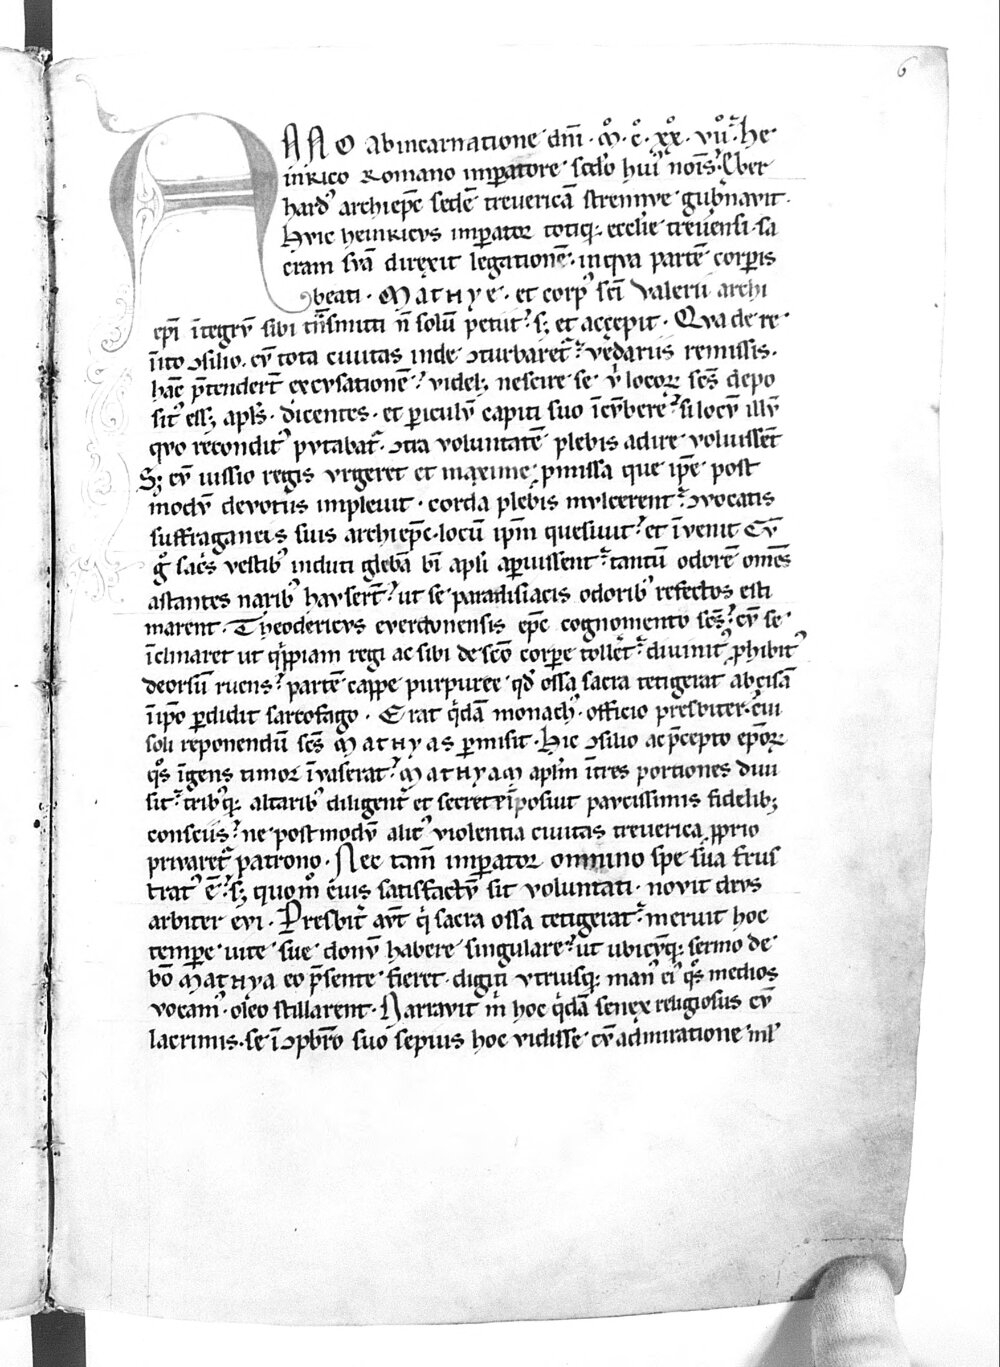 6
ANNO ab incarnatione dm̄i · M̊ · C̊ · XX̊ · VII̊ · he
inrico romano imperatore sc̄do huiꝰ nōis. Eber
hardꝰ archiep̄c sedē trevericā strennve gub̄navit ·
hvic heinricvs imperator totiq; eccl̄ie trevensi sa
cram svā direxit legationē · in qva partē corꝑis
beati · MATHYE · et corpꝰ sc̄i Valerii archi
ep̄i ītegrv̄ sibi tn̄smitti n̄ solū petiit · s; et accepit · Qva de re
īito ꝯsilio · cv̄ tota civitas inde ꝯturbaret᷑ · vedariis remissis ·
hāc p̄tendert̄ excvsationē · videl; nescire se v̇ locoꝝ sc̄s depo
sitꝰ ess; apl̄s · dicentes · et ꝑiculv̄ capiti suo īcv̄bere · si locv̄ illv̄
qvo reconditꝰ pvtabat᷑ · ꝯtra voluntatē plebis adire voluissēt
S; cv̄ iussio regis vrgeret et maxime ꝓmissa que ip̄e post
modv̄ devotus implevit · corda plebis mvlcerent᷑ · ꝯvocatis
suffraganeis suis archiep̄c · locū ip̄m quesivit · et īvenit Cv̄
g̊ sac̄s vestibꝰ induti glebā bī apl̄i aꝑuissent · tantū odorē om̄es
astantes naribꝰ havsert̄ · ut se paradisiacis odoribꝰ refectos esti
marent · Theodericvs everdvnensis ep̄c cognomento sc̄s · cv̄ se
īclinaret ut q̇ppiam regi ac sibi de sc̄o corꝑe tollēt · divinitꝰ ꝓhibitꝰ
deorsū ruens · partē cappe purpuree qd̄ ossa sacra tetigerat abscisā
īip̄o ꝑdidit sarcofago · Erat q̇dā monachꝰ · officio presbiter · cui
soli reponendū sc̄s MATHYAS ꝑmisit · Hic ꝯsilio ac p̄cepto ep̄oꝝ
qͦs īgens timor īvaserat · MATHYAM apl̄m ītres portiones divi
sit · tribꝰq; altaribꝰ diligent᷑ et secrete īposuit pavcissimis fidelib;
consciis · ne postmodv̄ alicꝰ violentia civitas treverica ꝓprio
privaret᷑ patrono · Nec tam̄ imperator omnino spe sua frus
tratꝰ ē · s; quom̊ eius satisfactv̄ sit voluntati · novit devs
arbiter evi · Presbit᷑ avt̄ q̇ sacra ossa tetigerat · meruit hoc
tempe vite sue donv̄ habere singulare · ut ubicv̄q; sermo de
bō MATHYA eo p̄sente fieret · digiti vtriusq; manꝰ eiꝰ qͦs medios
vocamꝰ · oleo stillarent · Narravit m̄ hoc q̇dā senex religiosus cv̄
lacrimis · se īꝯpb̄ro suo sepius hoc vidisse cv̄ admiratione ml̄